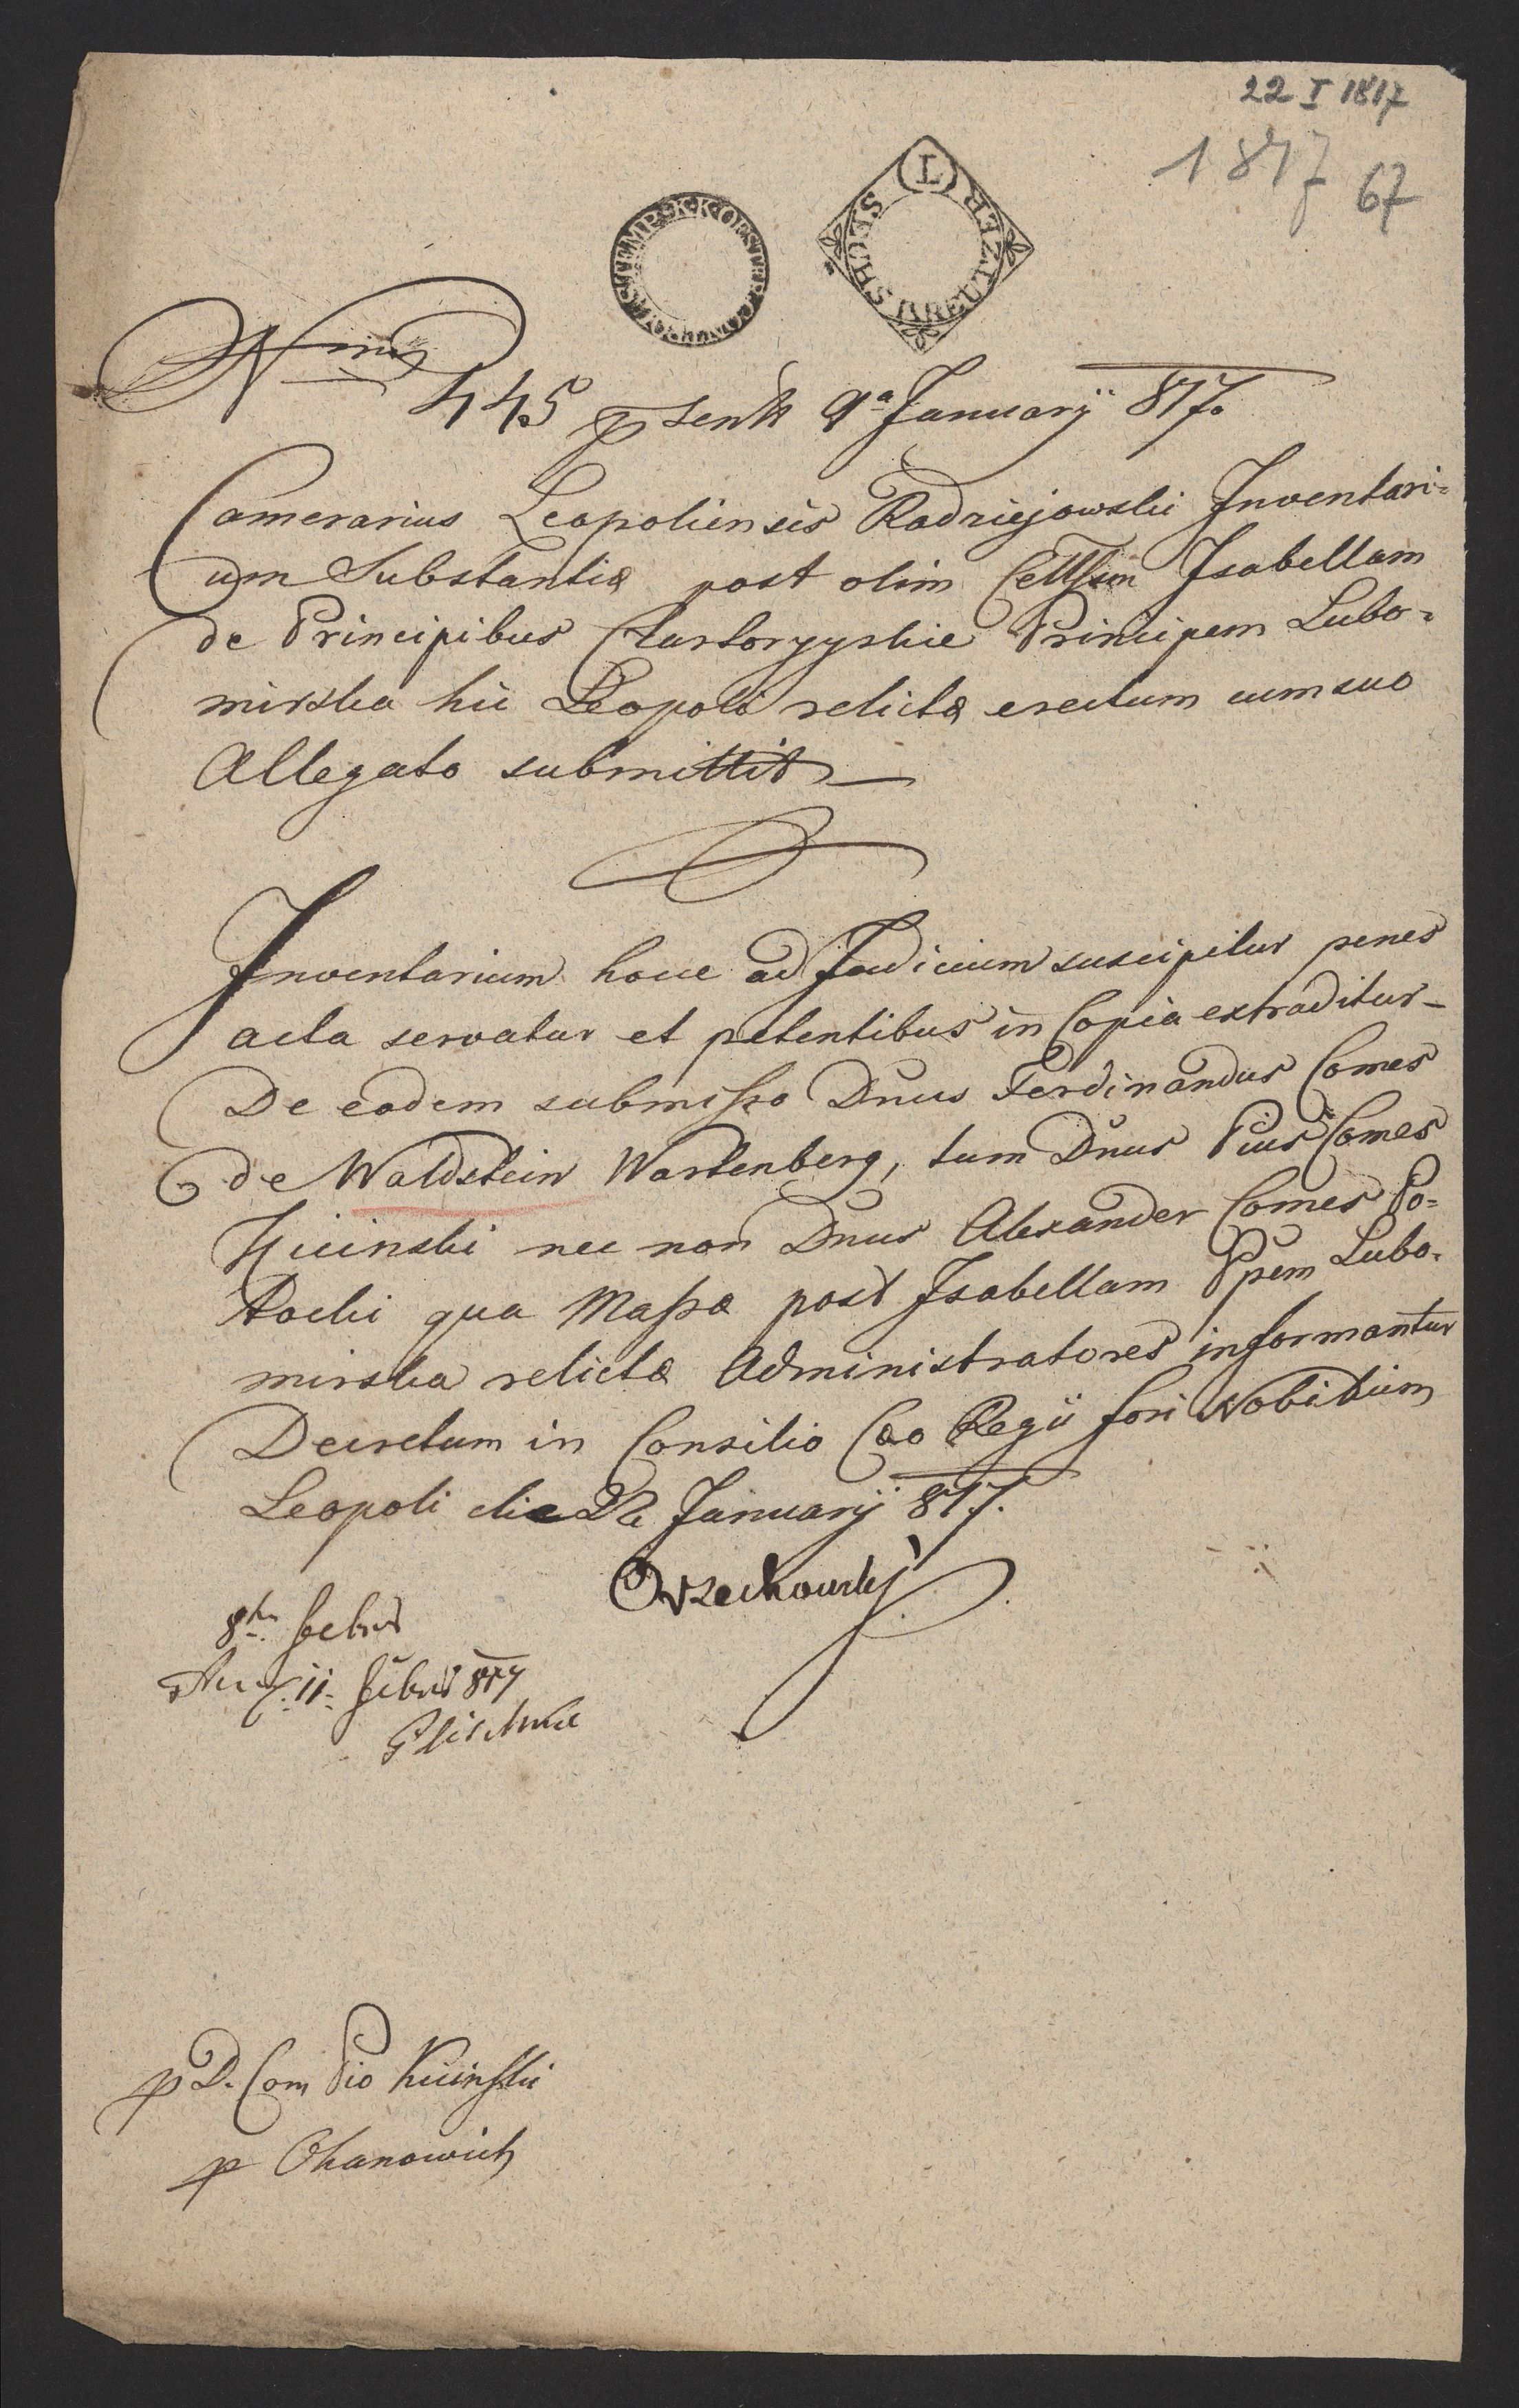 22 I 1817
1817 67
K.K. OESTER. CONTROLLS STEMP.
SECHS KREUTZER L
Nrus
445 psent 9a January 817.
Camerarius Leopoliensis Radziejowski Inventari=
um Substantiæ post olim Celssm Isabellam
de Principibus Czartoryyskie Principem Lubo=
mirska hic Leopoli relictæ erectum cum suo
Allegato submittit
Inventarium hocce ad Judicium suscipitur penes
acta servatur et petentibus in Copia extraditur -
De eodem submisso Dnus Ferdinandus Comes
de Waldstein Wartenberg, tum Dnus Pius Comes
Kicinski nec non Dnus Alexander Comes Po=
tocki qua Massæ post Isabellam Ppem Lubo=
mirska relictæ Administratores informantur
Decretum in Consilio Cæo Regii fori Nobilium
Leopoli die 22 January 817.
Orzechowsky
8tn Febr
11 Febr 817
p D. Com Pio Kicinski
p Ohanowich